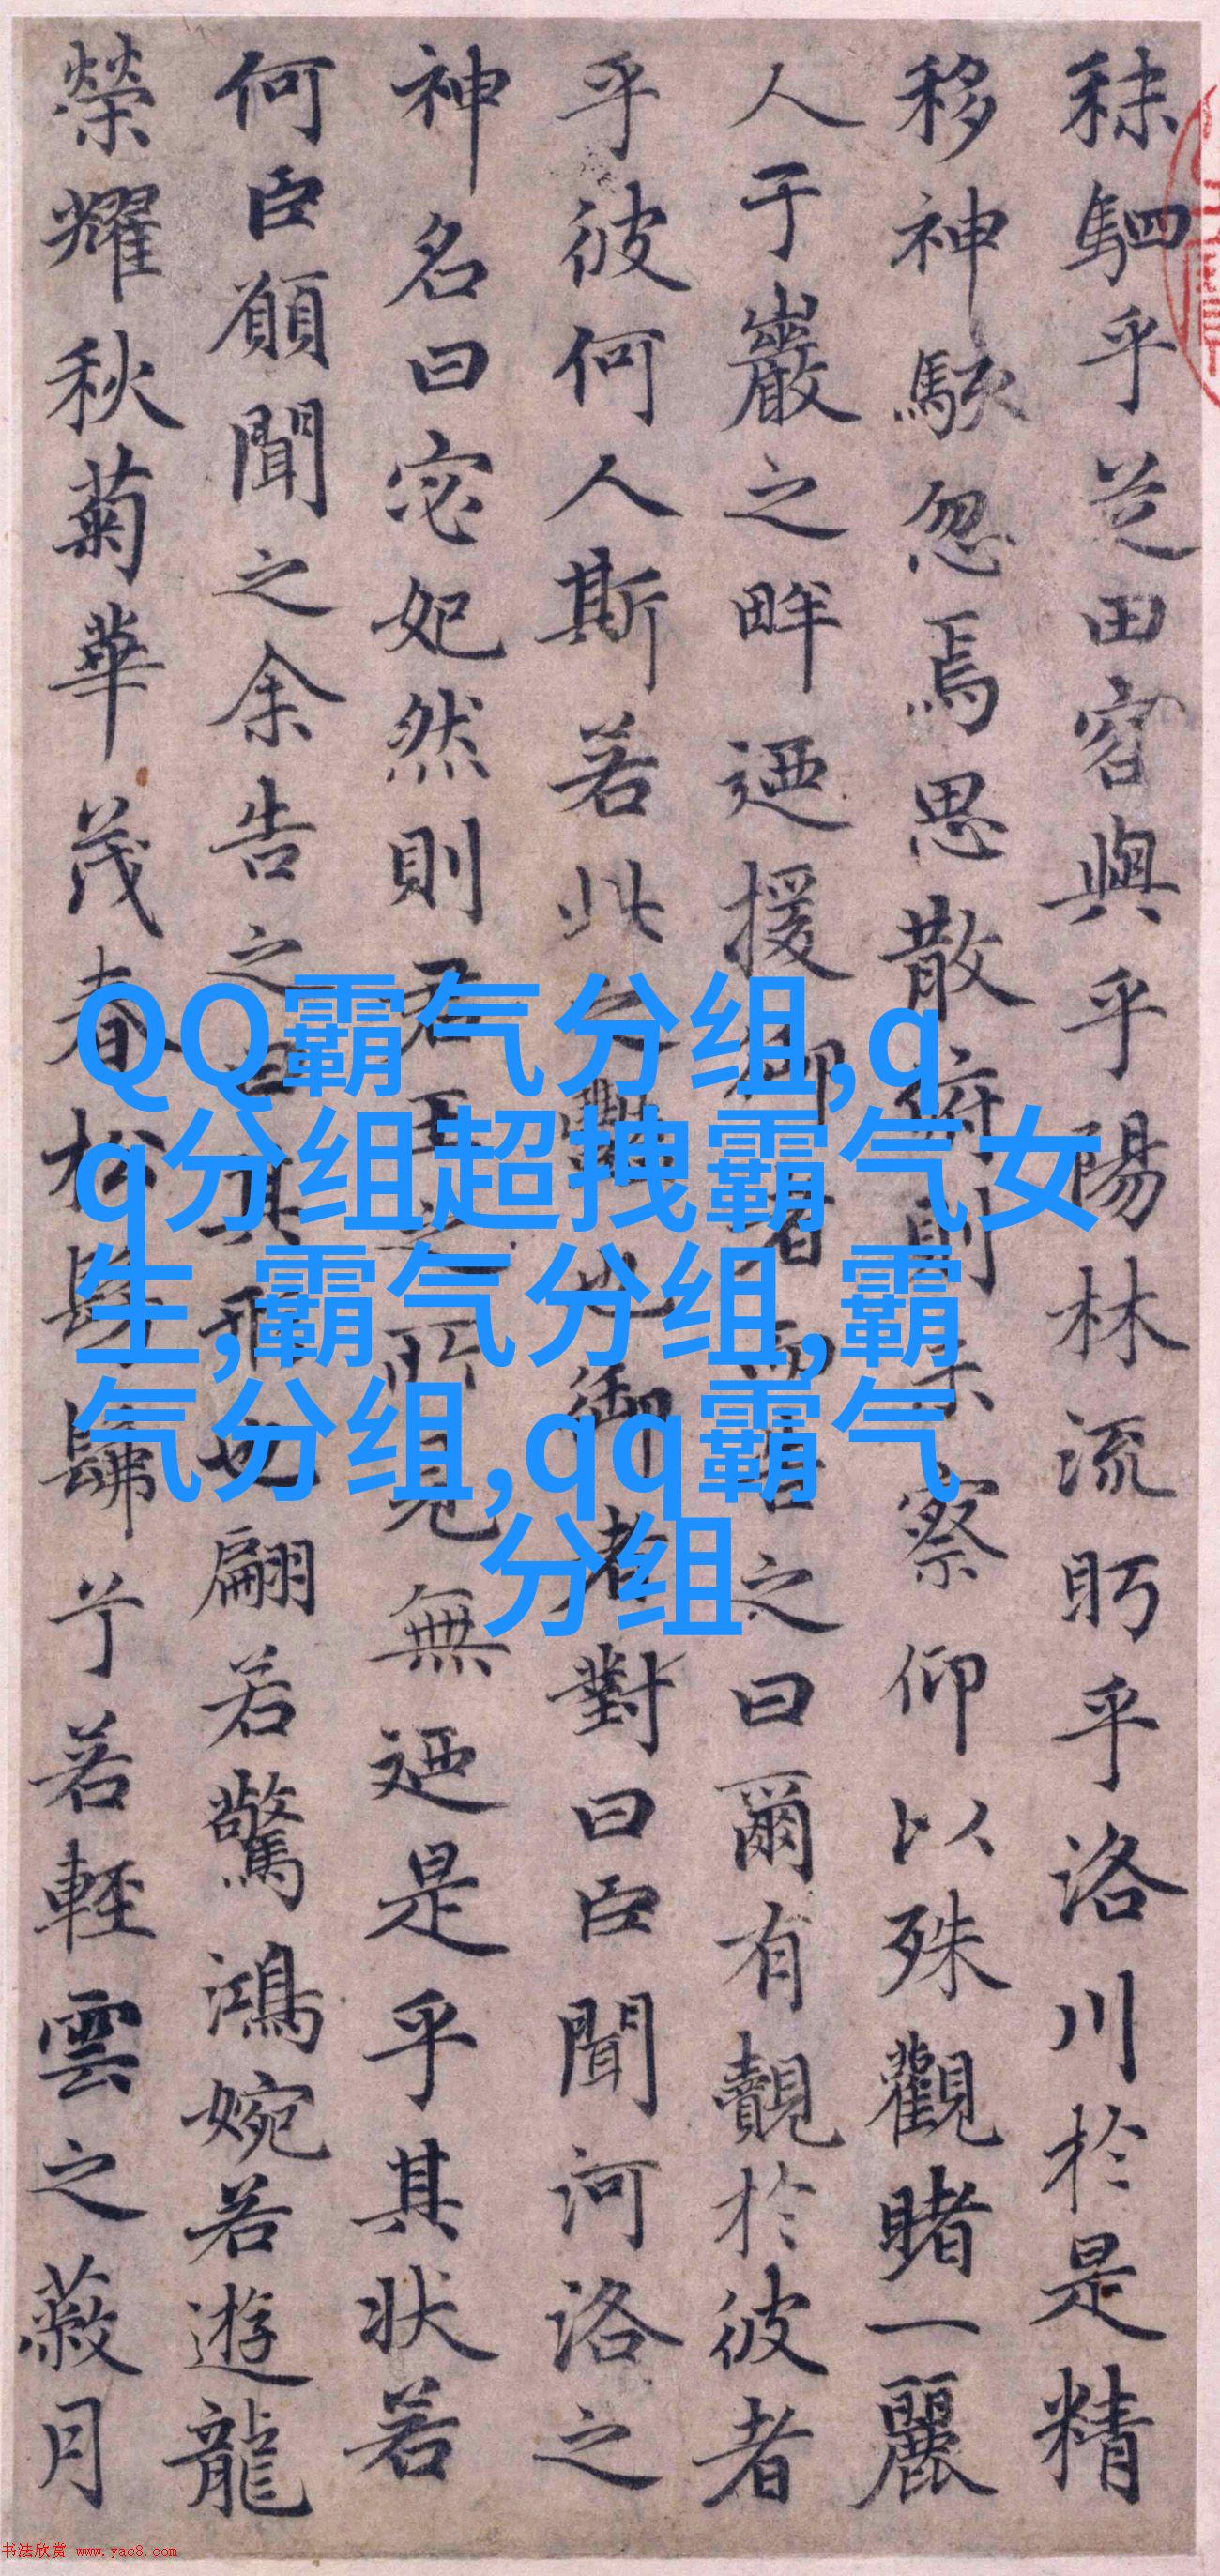 秣駟乎芝田容與乎陽林流眄乎洛川於是精
移神駭忽焉思散俯則未察仰以殊觀睹一麗
人于巖之畔迺援御者而告之曰爾有覿於彼者
乎彼何人斯若此之豔也御者對曰臣聞河洛之
神名曰宓妃然則君王之所見無迺是乎其狀若
何臣願聞之余告之曰其形也翩若驚鴻婉若遊龍
榮耀秋菊華茂春松髣髴兮若輕雲之蔽月
QQ霸气分组,q
q分组超拽霸气女
生,霸气分组,霸
气分组,qq霸气
分组
书法欣赏 www.yac8.com